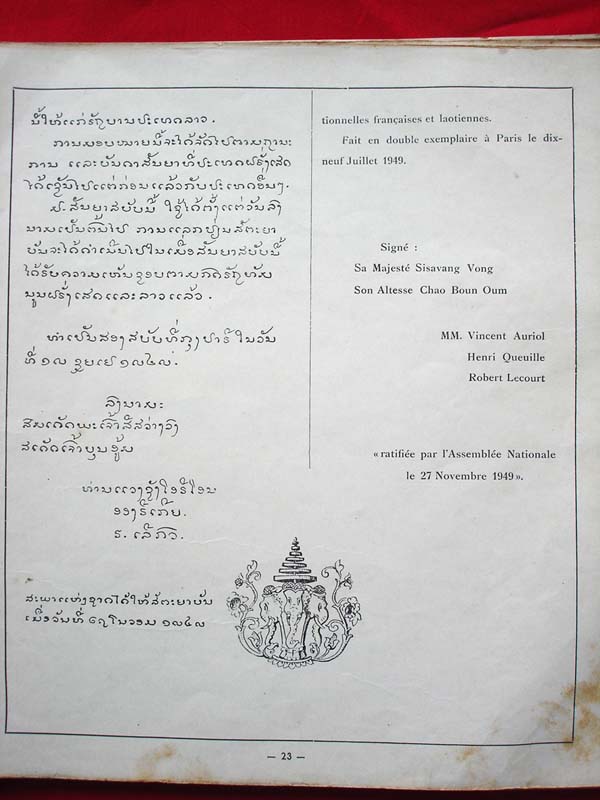 ນີ້ໃຫ້ແກ່ຣັຖບານປະເທດລາວ.
ການມອບໝາຍນີ້ຈະໄດ້ຈັດໄປຕາມຖານະ
ການ ແລະບັນດາສັນຍາທີ່ປະເທດຝຣັ່ງເສດ
ໄດ້ເຊັນໄປແຕ່ກ່ອນແລ້ວກັບປະເທດອື່ນໆ.
ປ. ສັນຍາສບັບນີ້ ໃຊ້ໄດ້ຕັ້ງແຕ່ວັນລົງ
ນາມເປັນຕົ້ນໄປ ການແລກປ່ຽນສັຕະຍາ
ບັນຈະໄດ້ດຳເນີນໄປໃນເມື່ອສັນຍາສບັບນີ້
ໄດ້ຮັບຄວາມເຫັນຊອບຕາມກົດຣັຖທັມ
ນູນຝຣັ່ງເສດແລະລາວແລ້ວ.
ທຳເປັນສອງສບັບທີ່ກຸງປາຣີ ໃນວັນ
ທີ່ ໑໙ ຊຸຍເຢ ໑໙໔໙.
ລົງນາມ:
ສົມເດັດພະເຈົ້າສີສວ່າງວົງ
ສເດັດເຈົ້າບຸນອູ້ມ
ທ່ານແວງຊັງໂອຣີໂອນ
ອອງຣີເກີຍ.
ຣ.
ສະພາແຫ່ງຊາດໄດ້ໃຫ້ສັຕະຍາບັນ
ເມື່ອວັນທີ່ ໒໗ ໂນວອມ ໑໙໔໙
tionnelles françaises et laotiennes.
Fait en double exemplaire à Paris le dix-
neuf Juillet 1949.
Signé :
Sa Majesté Sisavang Vong
Son Altesse Chao Boun Oum
MM. Vincent Auriol
Henri Queuille
Robert Lecourt
« ratifiée par l'Assemblée Nationale
le 27 Novembre 1949 ».
— 23 —